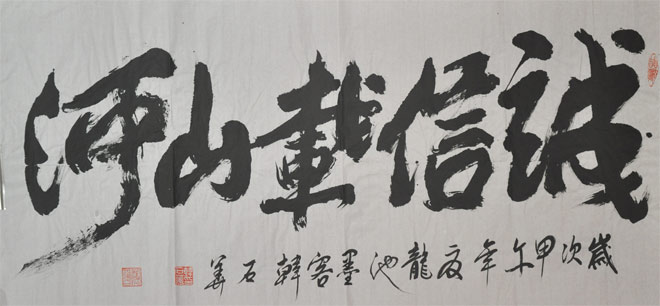 誠信載山河
歲次甲午年夏龍池墨客韓石